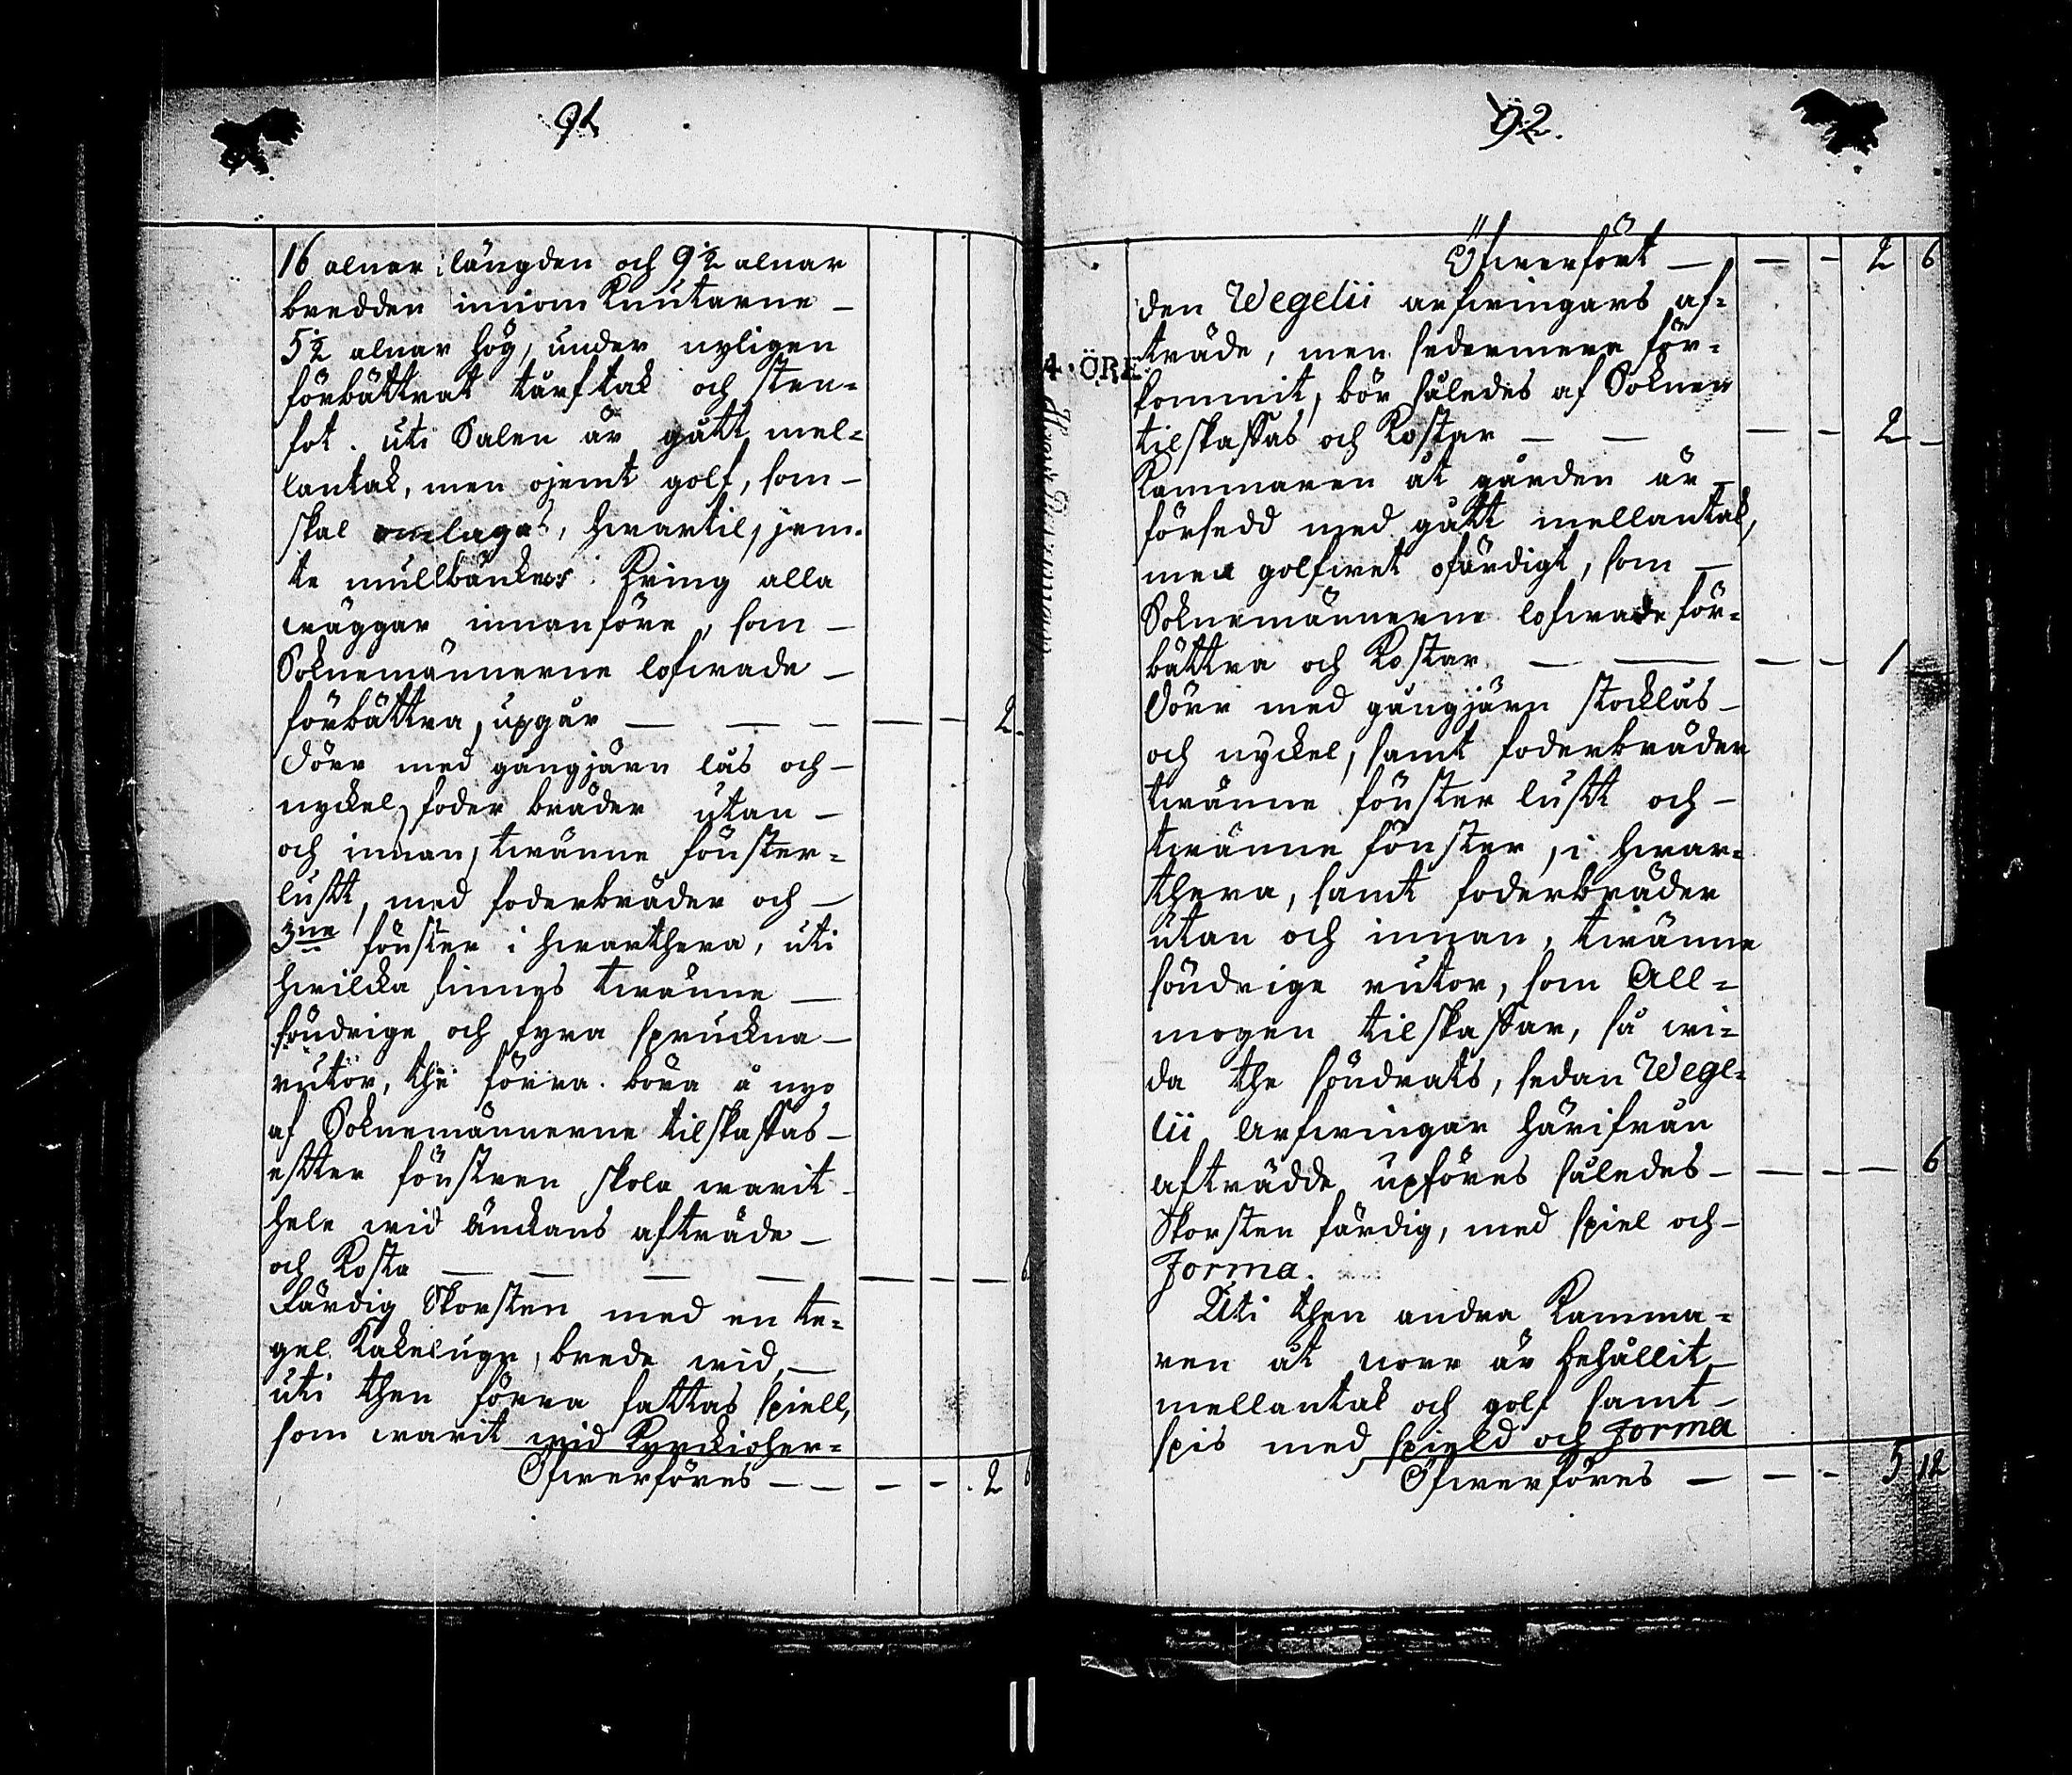 91
16 alnar i längden och 9½ alnar
bredden innom Knutarne —
5½ alnar hög, under nyligen
förbättrat tårftak och sten-
fot. uti Salen är gått mel-
lantak, men ojemt golf, som —
skal omlagas, hwartil, jem-
te mullbänker kring alla
wäggar innanföre, som —
Soknemännerne lofwade —
förbättra, upgår — — — — — 2.
Dörr med gångjärn lås och —
nyckel, foder bräder utan —
och innan, twänne fönster-
luftt, med foderbräder och —
3ne fönster i hwarthera, uti
hwilcka finnes twänne —
söndrige och fyra spruckna —
rutor, the förra böra å nyo
af Soknemännerne tilskaffas —
eftter fönstren skola warit —
hele wid änckans afträde —
och Kosta — — — — — — — 6
Färdig Skorsten med en te-
gel Kakelugn, brede wid, —
uti then förra fattas spiell,
som warit wid Kyrckioher-
Öfwerföres — — — — 2 6
92.
Öfwerfört — — — 2 6
den Wegelii arfwingars af-
träde, men sedermera för-
4. ÖRE
kommit, bör således af Soknen
tilskaffas och Kostar — — — — 2 —
Kammaren åt gården är —
försedd med gått mellantak,
men golfwet ofärdigt, som —
Soknemännerne lofwade för-
bättra och Kostar — — — — 1 —
Dörr med gångjärn stocklås —
och nyckel, samt foderbräder
twänne fönster luftt och —
twänne fönster, i hwar-
thera, samt foderbräder
utan och innan, twänne
söndrige rutor, som All-
mogen tilskaffar, så wi-
da the söndrats, sedan Wege-
lii Arfwingar härifrån
afträdde upföres således — — — — 6
Skorsten färdig, med spiel och —
Jorma.
Uti then andra Kamma-
ren åt norr är behållit —
mellantak och golf samt —
spis med spield och Jorma
Öfwerföres — — — 5 12